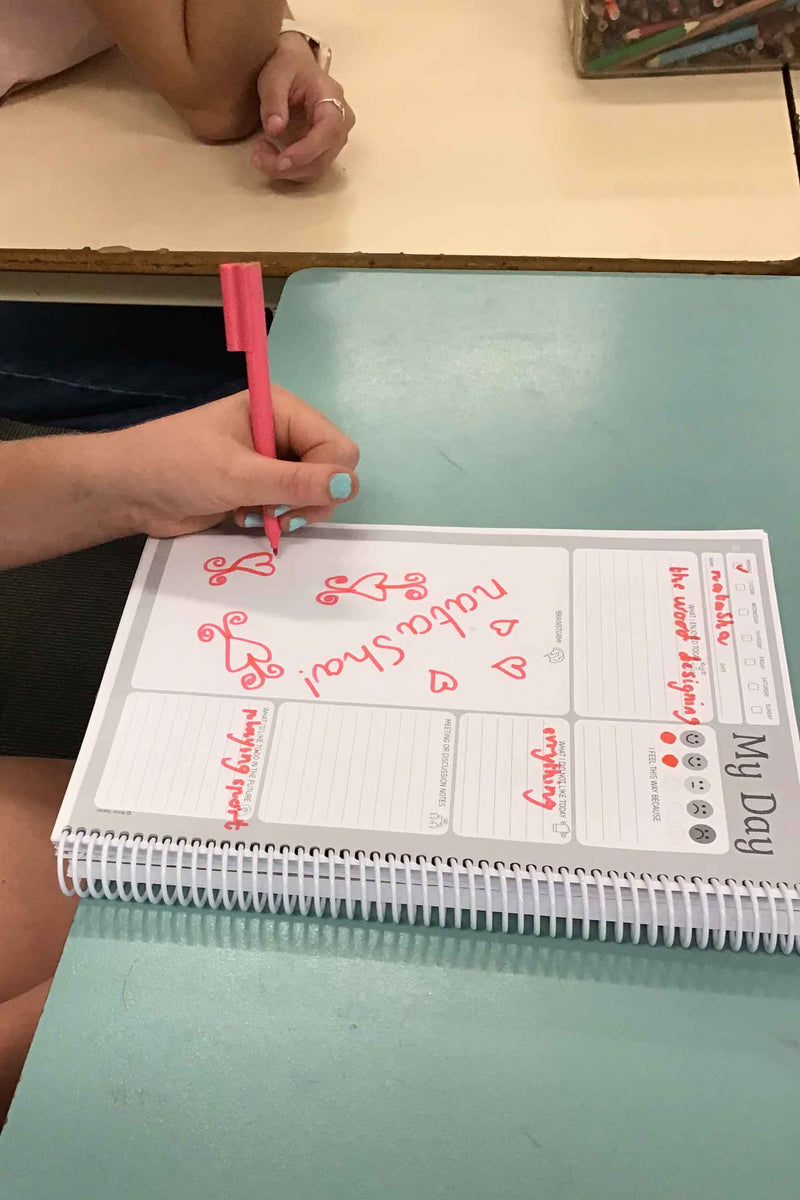 My Day
MONDAY TUESDAY WEDNESDAY THURSDAY FRIDAY SATURDAY SUNDAY
NAME: natasha
DATE:
WHAT I ENJOYED TODAY
the word designing
I FEEL THIS WAY BECAUSE
BRAINSTORM
natasha!
WHAT I DIDN'T LIKE TODAY
everything
MEETING OR DISCUSSION NOTES
WHAT I'D LIKE TO DO IN THE FUTURE
playing sport